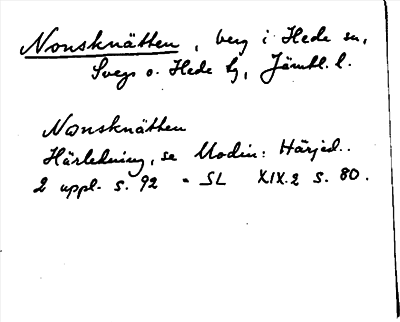 Nonsknätten, berg i Hede sn,
Svegs o. Hede tg, Jämtl. l.
Nonsknätten
Härledning, se Modin: Härjed..
2 uppl. s. 92 - SL XIX.2 s. 80.